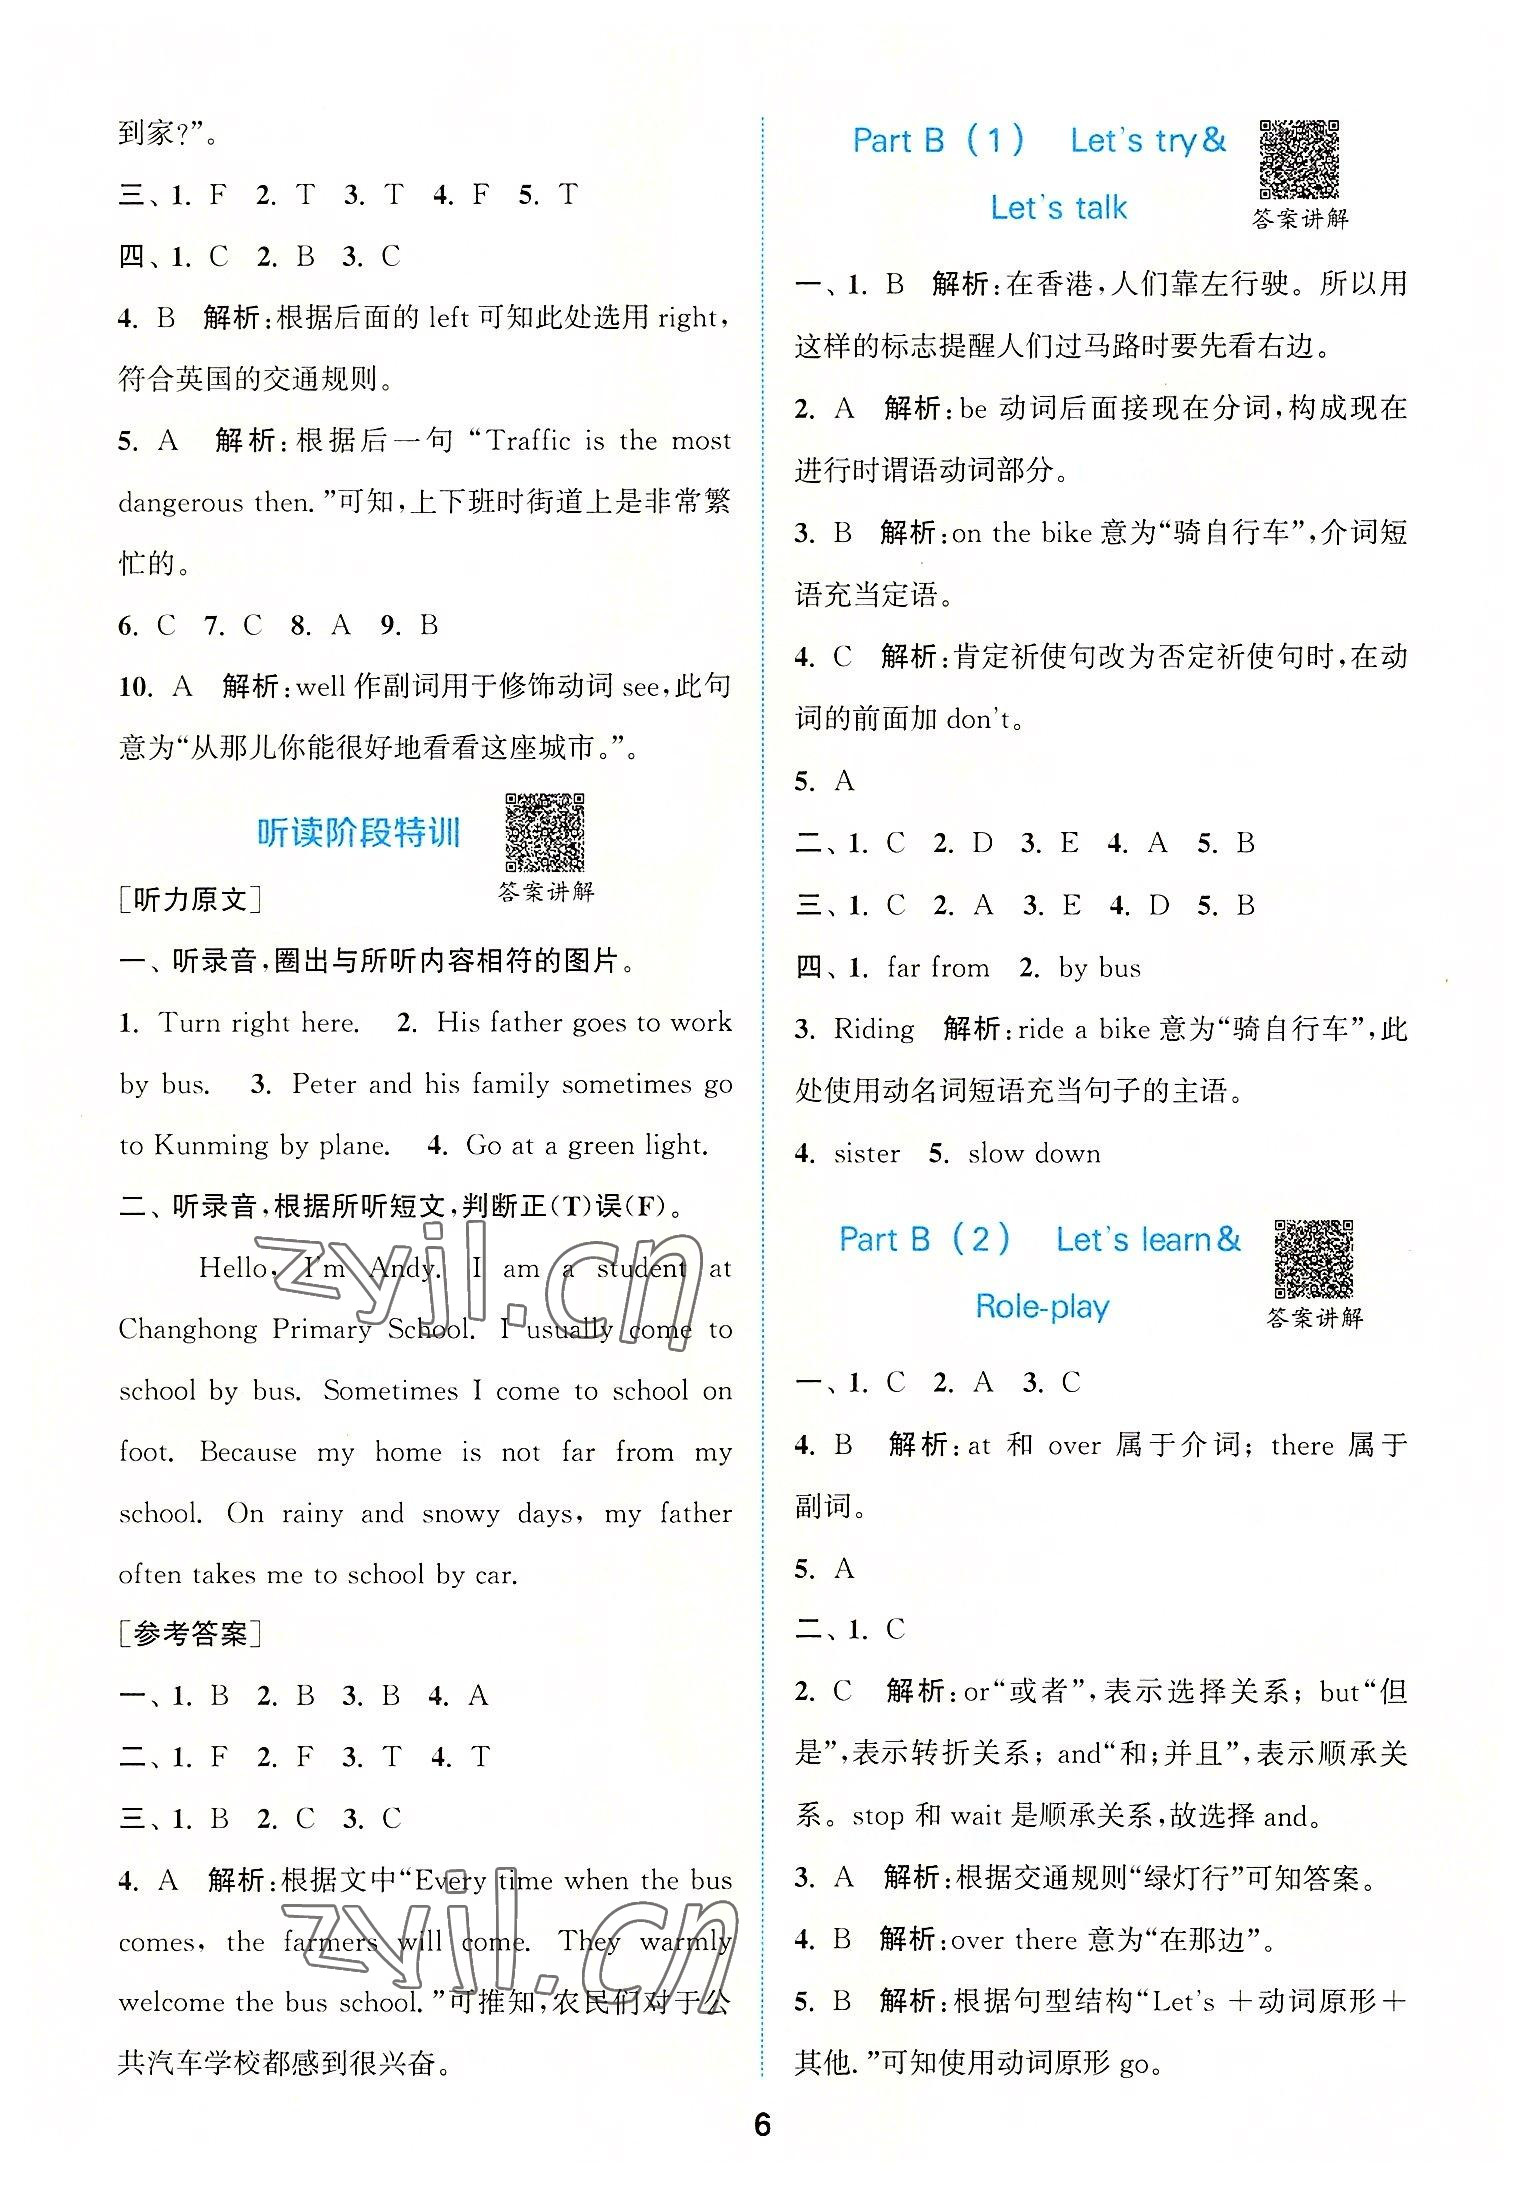 到家?”。
三、1. F 2. T 3. T 4. F 5. T
四、1. C 2. B 3. C
4. B 解析:根据后面的 left 可知此处选用 right,
符合英国的交通规则。
5. A 解析:根据后一句 “Traffic is the most
dangerous then.”可知,上下班时街道上是非常繁
忙的。
6. C 7. C 8. A 9. B
10. A 解析:well 作副词用于修饰动词 see,此句
意为“从那儿你能很好地看看这座城市。”。
听读阶段特训
答案讲解
[听力原文]
一、听录音,圈出与所听内容相符的图片。
1. Turn right here. 2. His father goes to work
by bus. 3. Peter and his family sometimes go
to Kunming by plane. 4. Go at a green light.
二、听录音,根据所听短文,判断正(T)误(F)。
Hello, I'm Andy. I am a student at
Changhong Primary School. I usually come to
school by bus. Sometimes I come to school on
foot. Because my home is not far from my
school. On rainy and snowy days, my father
often takes me to school by car.
[参考答案]
一、1. B 2. B 3. B 4. A
二、1. F 2. F 3. T 4. T
三、1. B 2. C 3. C
4. A 解析:根据文中“Every time when the bus
comes, the farmers will come. They warmly
welcome the bus school.”可推知,农民们对于公
共汽车学校都感到很兴奋。
Part B (1) Let's try&
Let's talk
答案讲解
一、1. B 解析:在香港,人们靠左行驶。所以用
这样的标志提醒人们过马路时要先看右边。
2. A 解析:be 动词后面接现在分词,构成现在
进行时谓语动词部分。
3. B 解析:on the bike 意为“骑自行车”,介词短
语充当定语。
4. C 解析:肯定祈使句改为否定祈使句时,在动
词的前面加 don't。
5. A
二、1. C 2. D 3. E 4. A 5. B
三、1. C 2. A 3. E 4. D 5. B
四、1. far from 2. by bus
3. Riding 解析:ride a bike 意为“骑自行车”,此
处使用动名词短语充当句子的主语。
4. sister 5. slow down
Part B (2) Let's learn&
Role-play
答案讲解
一、1. C 2. A 3. C
4. B 解析:at 和 over 属于介词; there 属于
副词。
5. A
二、1. C
2. C 解析:or“或者”,表示选择关系; but“但
是”,表示转折关系; and“和;并且”,表示顺承关
系。stop 和 wait 是顺承关系,故选择 and。
3. A 解析:根据交通规则“绿灯行”可知答案。
4. B 解析:over there 意为“在那边”。
5. B 解析:根据句型结构“Let's +动词原形+
其他.”可知使用动词原形 go。
6
zyjl.cn
zyjl.cn